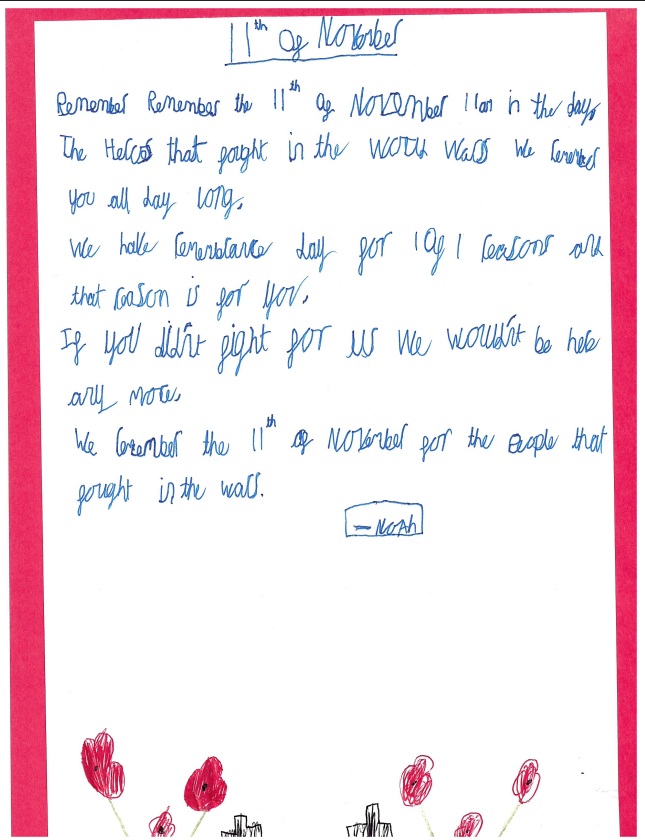 11th of November
Remember Remember the 11th of November 11am in the day,
The Heros that fought in the world wars we remember
you all day long.
We have remembrance day for 1 of 1 reasons and
that reason is for you.
If you didn't fight for us we wouldn't be here
any more.
We remember the 11th of November for the people that
fought in the wars.
- Noah